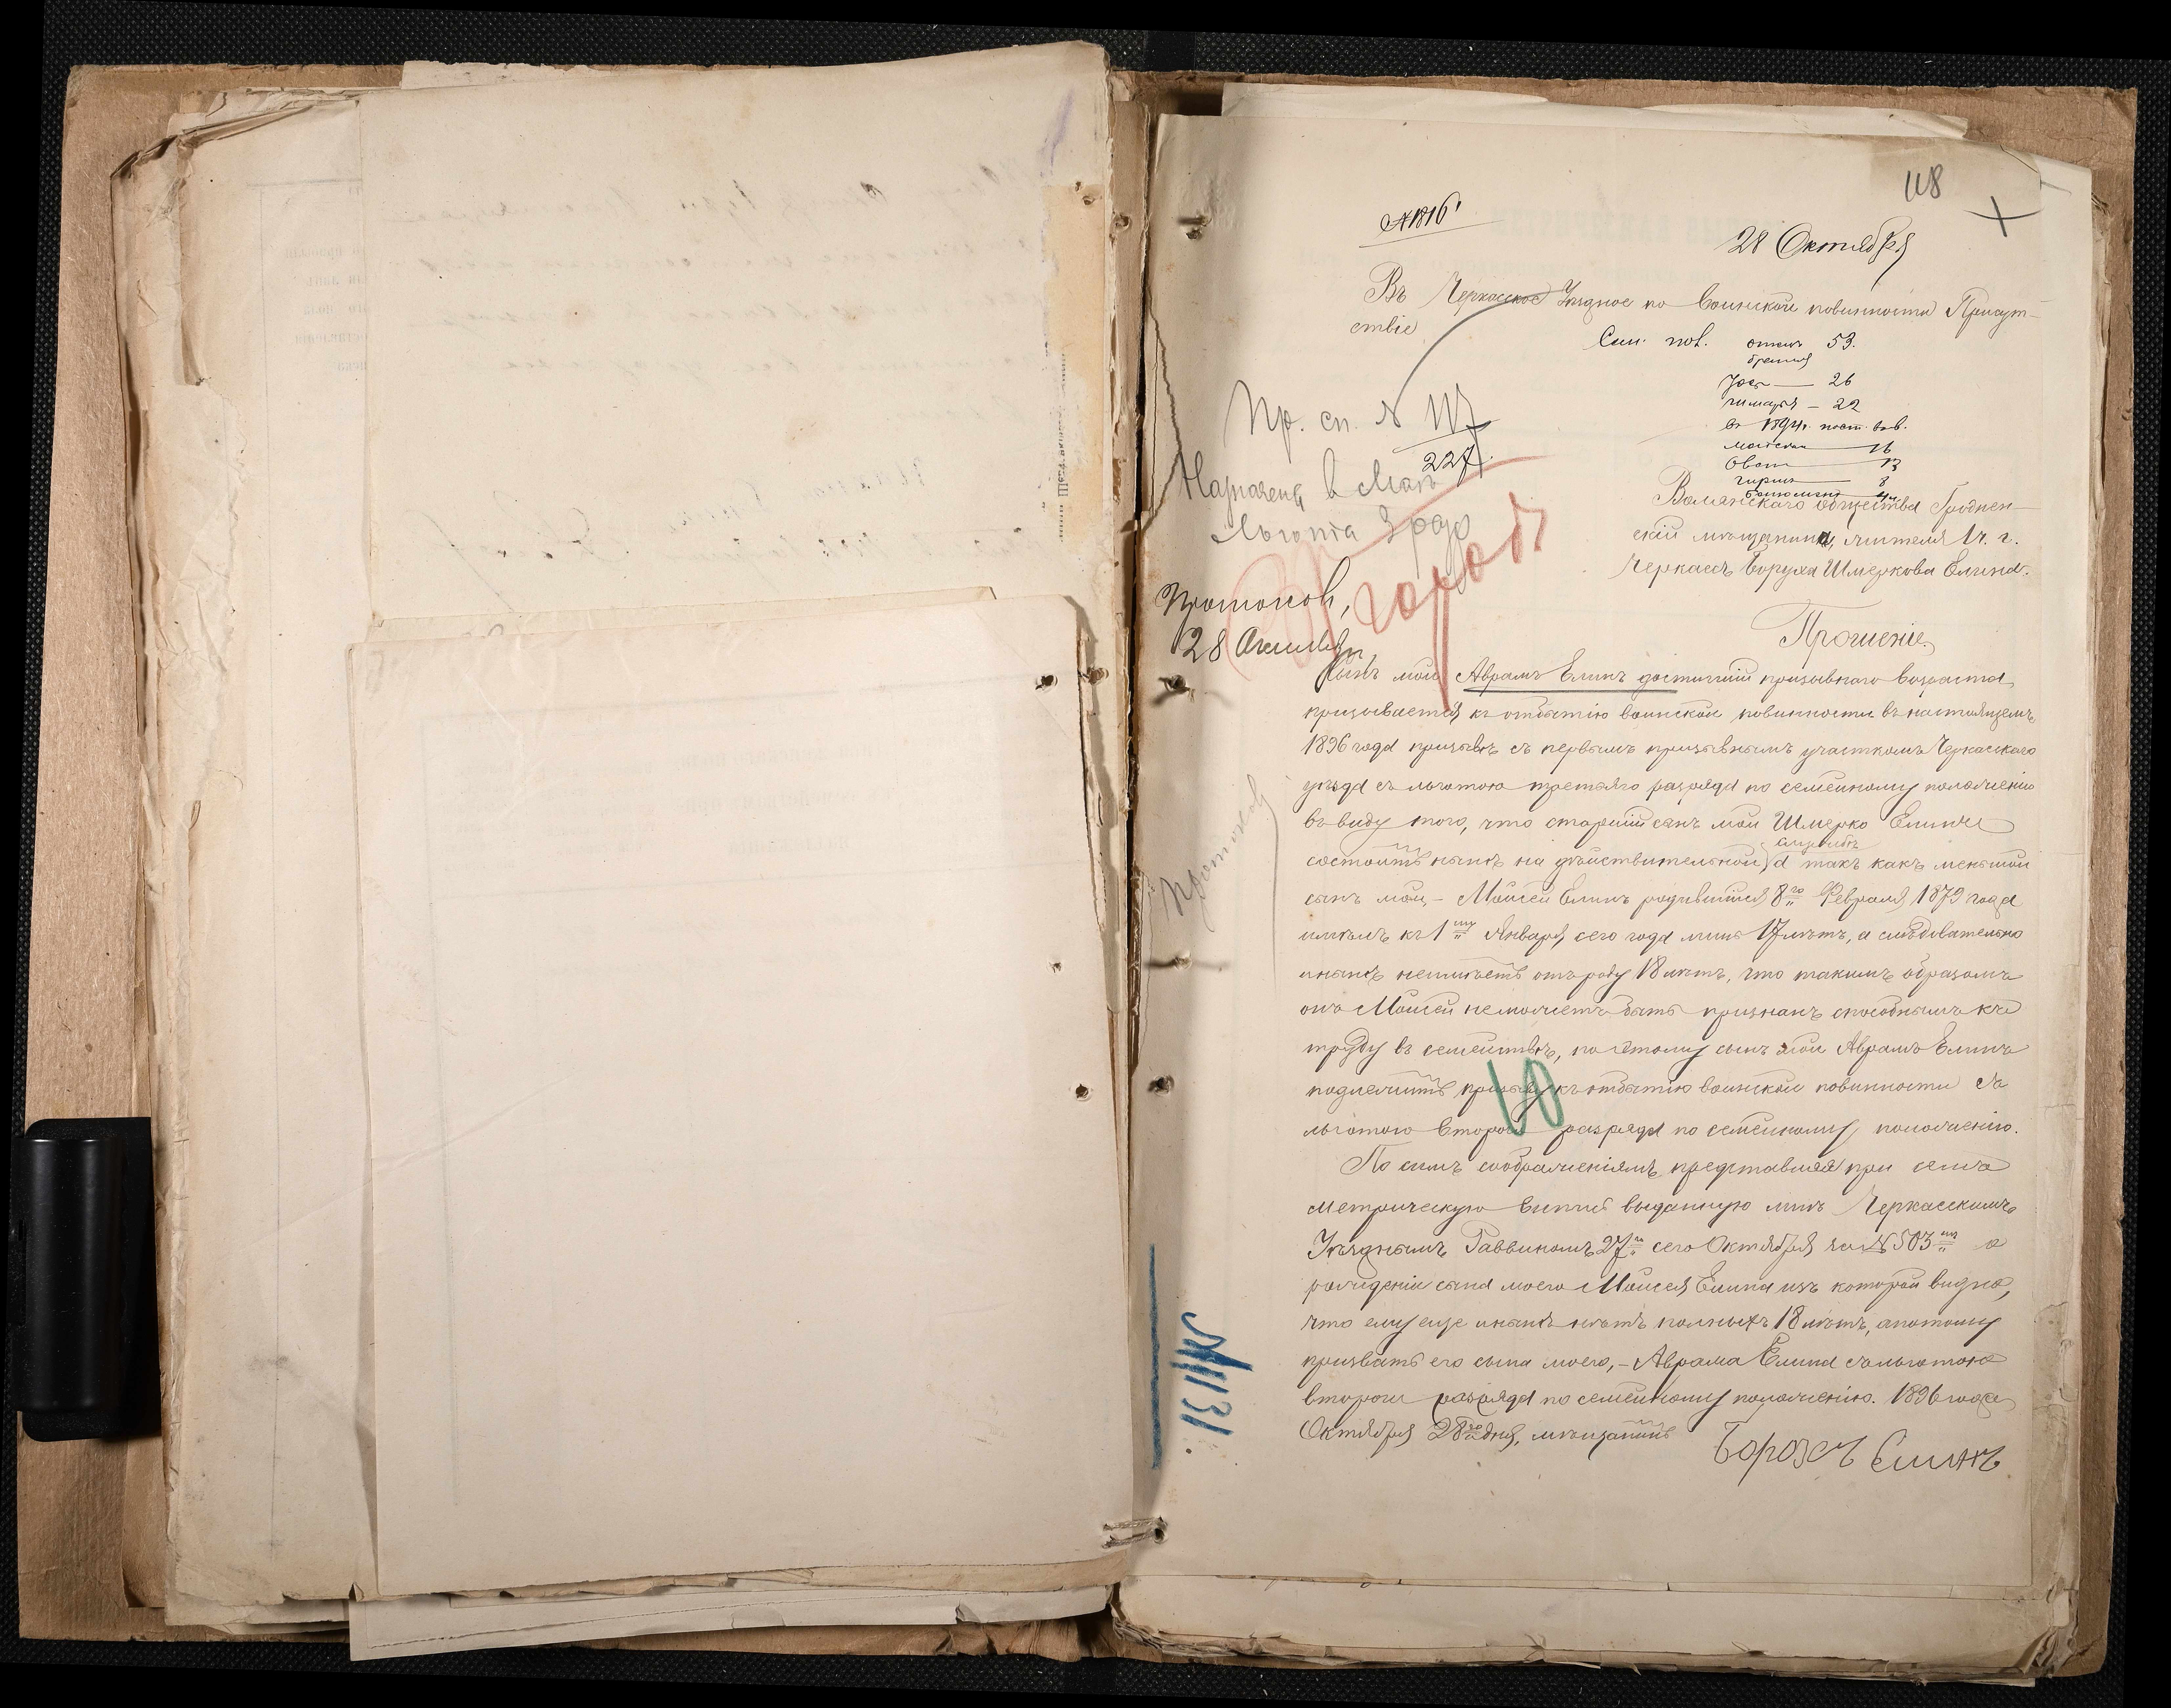 118
№ 1816
28 Октября
Въ Черкасское Уѣздное по воинской повинности Присут-
ствіе
Сем. пол. отецъ 53.
братья
26
22
въ 1894 г.
16
13
8
Пр. сп. № 117
227.
Назначенъ в
Льгота 3 разр
Воланскаго Общества Гроднен-
скій мѣщанина, жителя 1 ч. г.
Черкассъ Боруха Шмеркова Елина.
Протоколъ,
28 Октября
Прошеніе.
Сынъ мой Аврамъ Елинъ достигшій призывнаго возраста,
призывается къ отбытію воинской повинности въ настоящемъ
1896 года призывѣ съ первымъ призывнымъ участкомъ Черкасскаго
уѣзда съ льготою третьяго разряда по семейному положенію
въ виду того, что старшій сынъ мой Шмерко Елинъ
службѣ
состоитъ нынѣ на дѣйствительной, а такъ какъ меньшой
сынъ мой, – Мойсей Елинъ родившійся 8го Февраля 1879 года
имѣлъ къ 1му Января сего года лишь 17 лѣтъ, а слѣдовательно
и нынѣ неимѣетъ отъ роду 18 лѣтъ, что такимъ образомъ
онъ Мойсей неможетъ быть признанъ способнымъ къ
труду въ семействѣ, по этому сынъ мой Аврамъ Елинъ
подлежитъ призыву къ отбытію воинской повинности съ
льготою второго разряда по семейному положенію.
По симъ соображеніямъ представляя при семъ
метрическую выпись выданную мнѣ Черкасскимъ
Уѣзднымъ Раввиномъ 27го сего Октября за № 503мъ о
рожденіи сына моего Мойсея Елина изъ которой видно,
что ему еще и нынѣ нѣтъ полныхъ 18 лѣтъ, а потому
призвать его сына моего, – Аврама Елина съ льготою
второго разряда по семейному положенію. 1896 года
Октября 28го дня, мѣщанинъ
Борохъ Елинъ
Протоколъ
10
№ 1131